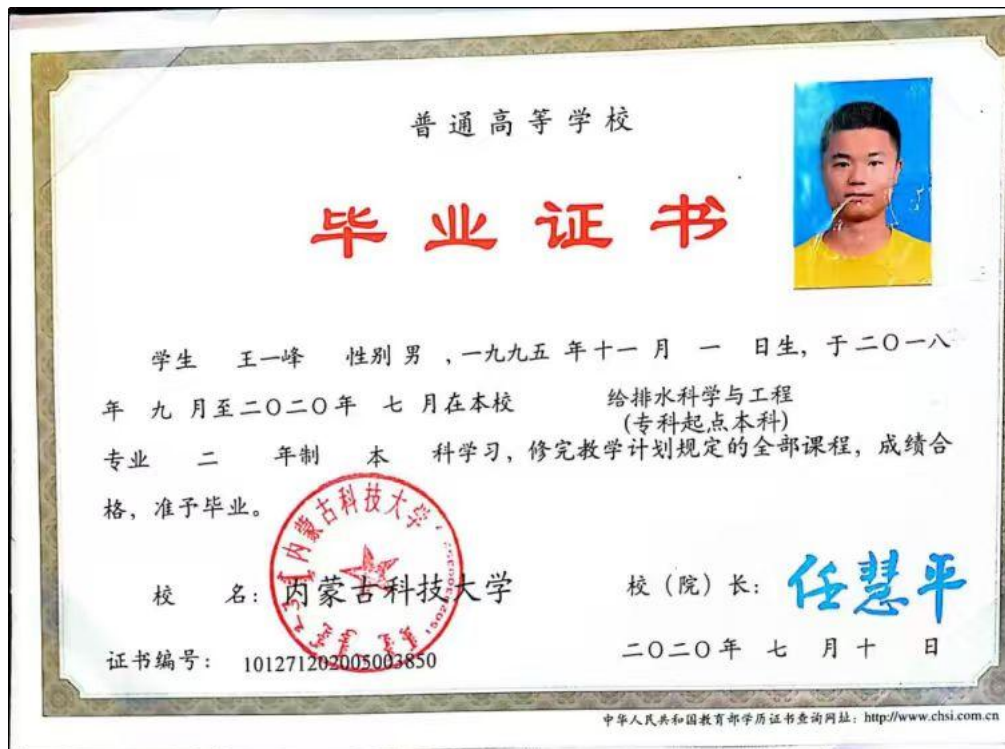 普通高等学校
毕业证书
学生 王一峰 性别 男 ,一九九五 年十一 月 一 日生, 于二〇一八
年 九 月至二〇二〇年 七 月在本校 给排水科学与工程
(专科起点本科)
专业 二 年制 本 科学习, 修完教学计划规定的全部课程, 成绩合
格, 准予毕业。
内蒙古科技大学
校 名: 内蒙古科技大学 校(院)长: 任慧平
证书编号: 101271202005003850 二〇二〇年 七 月十 日
中华人民共和国教育部学历证书查询网址: http://www.chsi.com.cn